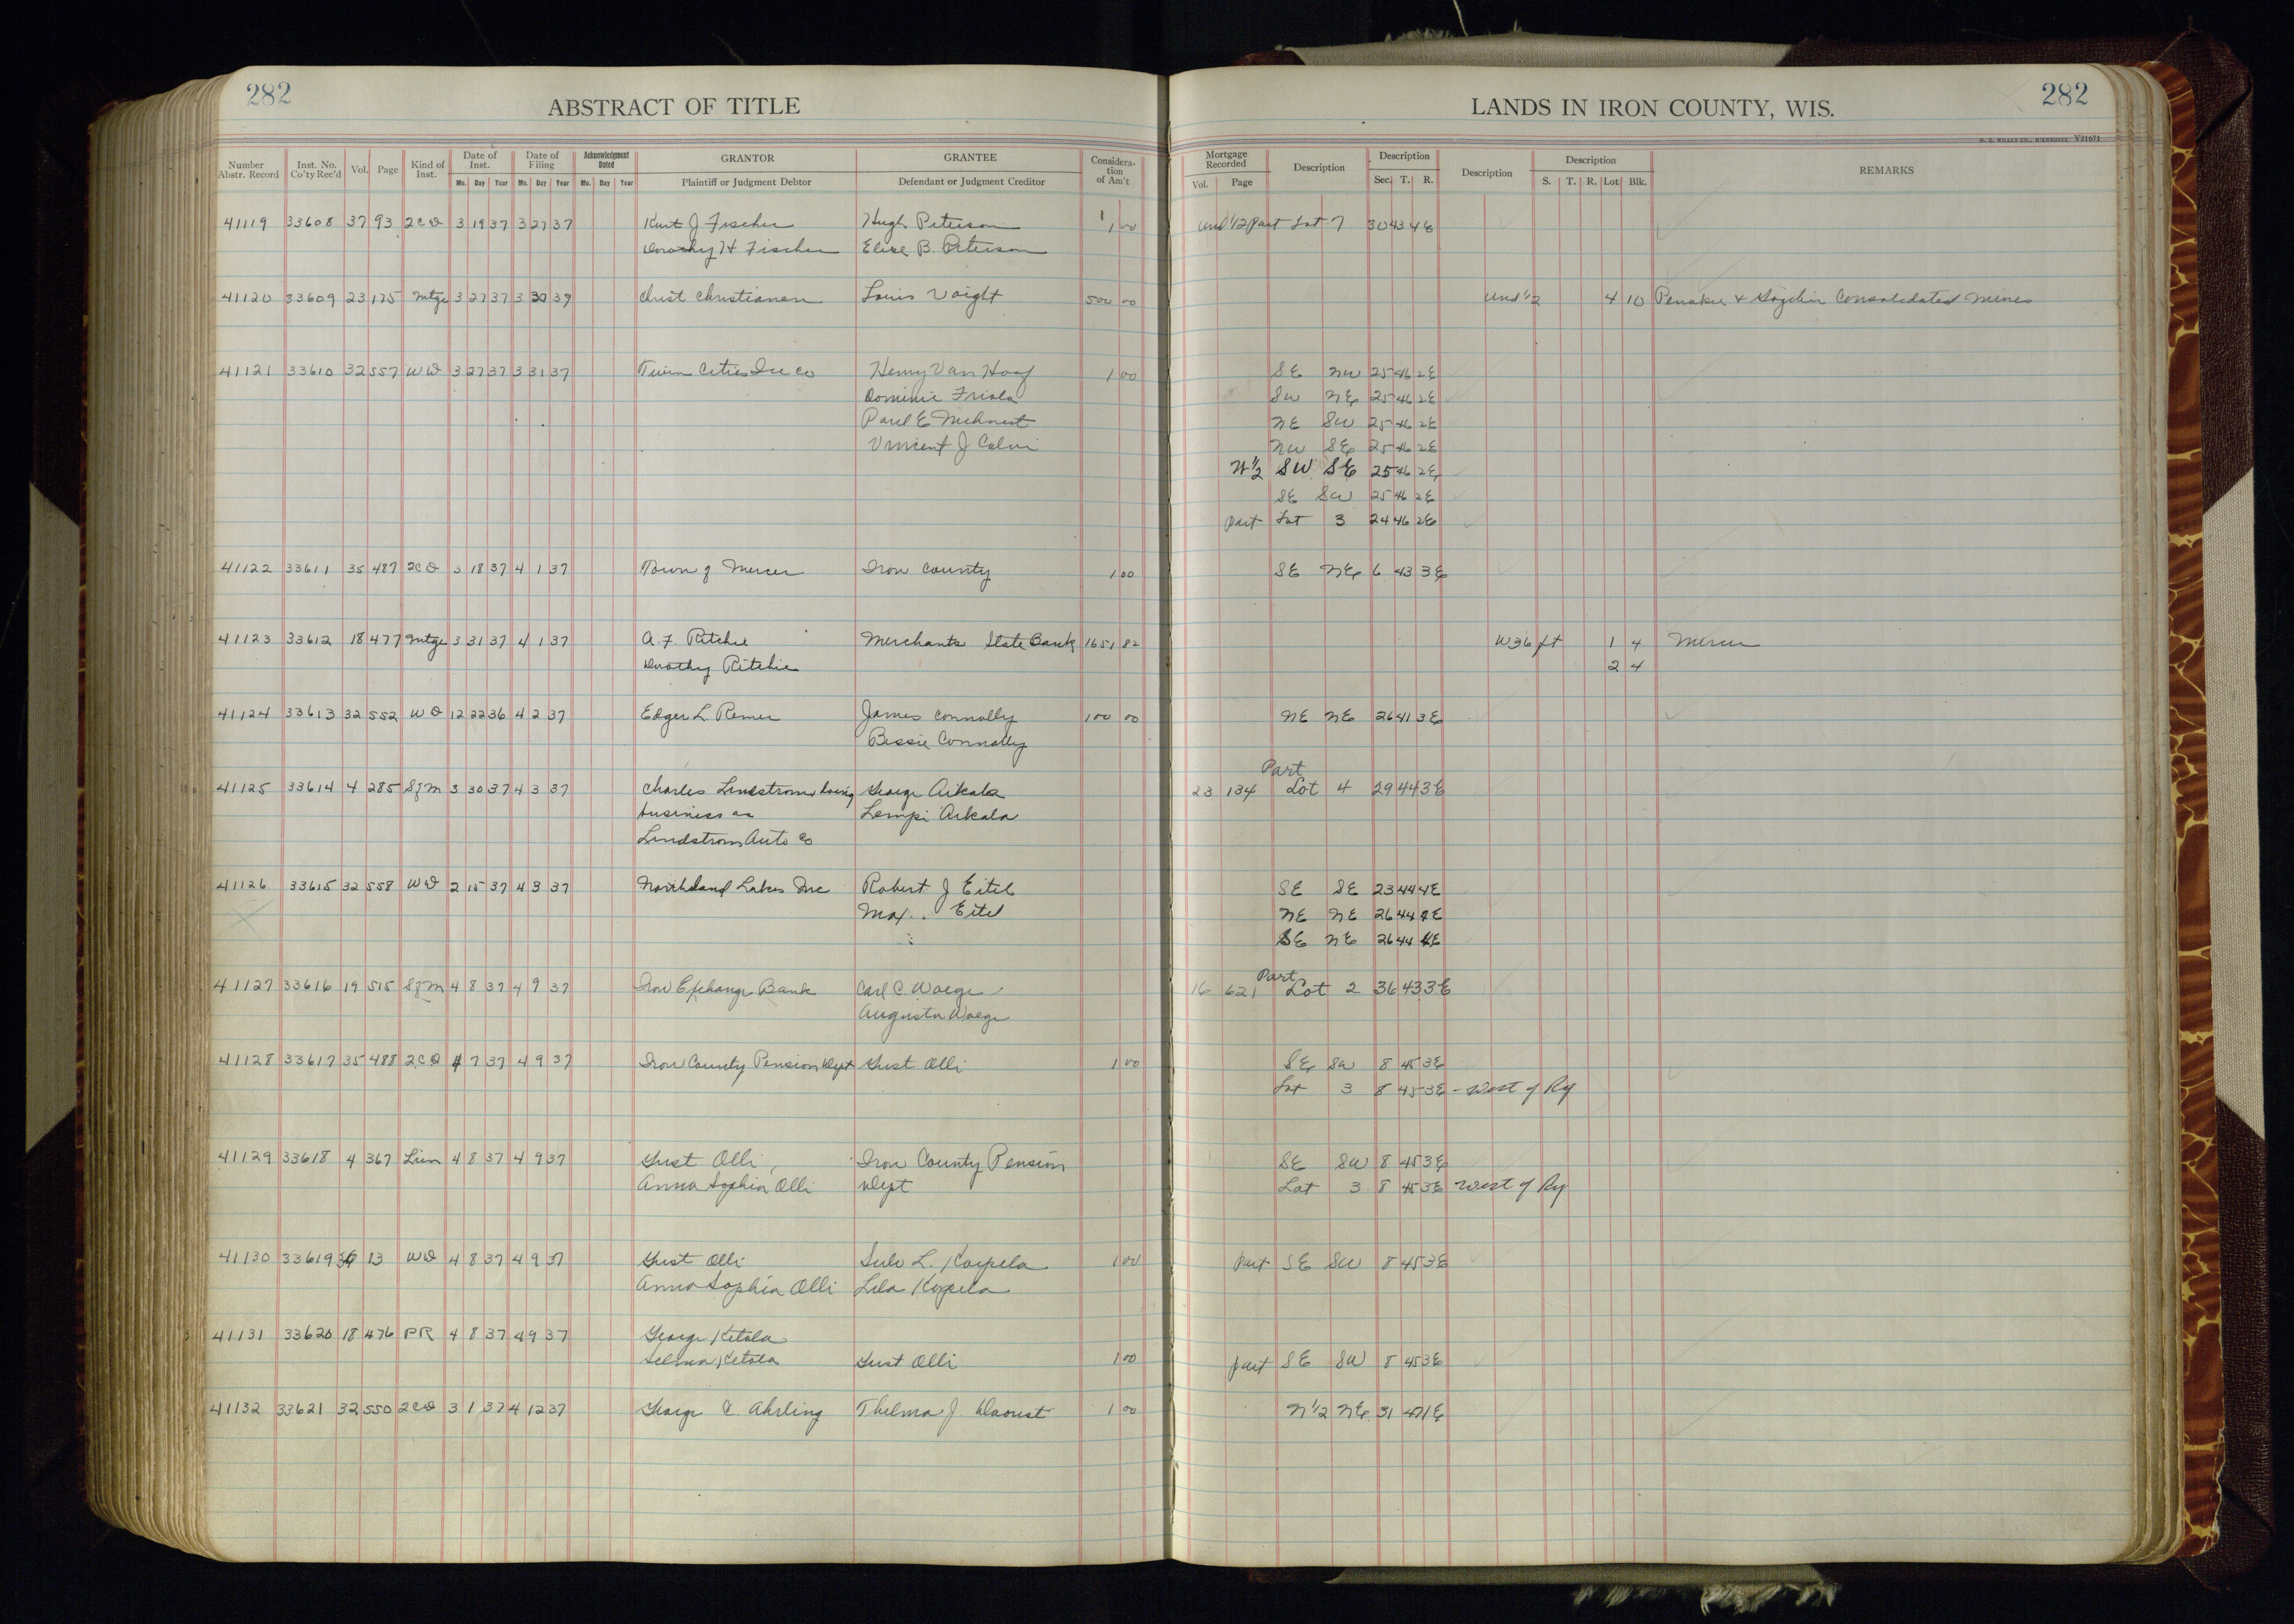 282
ABSTRACT OF TITLE
LANDS IN IRON COUNTY, WIS.
282
H. C. MILLER CO., MILWAUKEE V21671
Number Abstr. Record Inst. No. Co'ty Rec'd Vol. Page Kind of Inst. Date of Inst. Mo. Day Year Date of Filing Mo. Day Year Acknowledgment Dated Mo. Day Year GRANTOR Plaintiff or Judgment Debtor GRANTEE Defendant or Judgment Creditor Considera-tion of Am't Mortgage Recorded Vol. Page Description Description Sec. T. R. Description Description S. T. R. Lot Blk. REMARKS
41119 33608 37 93 2CD 3 19 37 3 27 37 Kurt J Fischer Hugh Peterson 1 00 und 1/2 Part Lot 7 30 43 4E
Dorothy H Fischer Elise B. Peterson
41120 33609 23 175 Mtge 3 27 37 3 30 39 Christ Christianen Louis Voight 500 00 und 1/2 4 10 Consolidated Mines
41121 33610 32 557 WD 3 27 37 3 31 37 Twin Cities Ice Co Henry Van Hoof 1 00 SE NW 25 46 2E
Dominic Friola SW NE 25 46 2E
Paul E NE SW 25 46 2E
Vincent J Calvi NW SE 25 46 2E
N 1/2 SW SE 25 46 2E
SE SW 25 46 2E
Part Lot 3 24 46 2E
41122 33611 35 487 2CD 3 18 37 4 1 37 Town of Mercer Iron County 1 00 SE NE 6 43 3E
41123 33612 18 477 Mtge 3 31 37 4 1 37 A. F. Ritchie Merchants State Bank 1651 82 W 36 ft 1 4 Mercer
Dorothy Ritchie 2 4
41124 33613 32 552 WD 12 22 36 4 2 37 Edger L. Remer James Connolly 100 00 NE NE 26 41 3E
Bessie Connolly
Part
41125 33614 4 285 SfM 3 30 37 4 3 37 Charles Lindstrom doing George Aikala 23 134 Lot 4 29 44 3E
business as Lempi Aikala
Lindstrom Auto Co
41126 33615 32 558 WD 2 15 37 4 3 37 Northland Lakes Inc Robert J Eitel SE SE 23 44 4E
Max Eitel NE NE 26 44 4E
SE NE 26 44 4E
Part
41127 33616 19 515 SfM 4 8 37 4 9 37 Iron Exchange Bank Carl C. Waege 16 621 Lot 2 36 43 3E
Augusta Waege
41128 33617 35 488 2CD 4 7 37 4 9 37 Iron County Pension Dept Gust Olli 1 00 SE SW 8 45 3E
Lot 3 8 45 3E - West of Ry
41129 33618 4 367 Lien 4 8 37 4 9 37 Gust Olli Iron County Pension SE SW 8 45 3E
Anna Sophia Olli Dept Lot 3 8 45 3E West of Ry
41130 33619 36 13 WD 4 8 37 4 9 37 Gust Olli Sulo L. Korpela 1 00 Part SE SW 8 45 3E
Anna Sophia Olli Lila Korpela
41131 33620 18 476 PR 4 8 37 4 9 37 George Ketola
Selma Ketola Gust Olli 1 00 part SE SW 8 45 3E
41132 33621 32 550 2CD 3 1 37 4 12 37 George C. Ahrling Thelma J Daoust 1 00 N 1/2 NE 31 47 1E